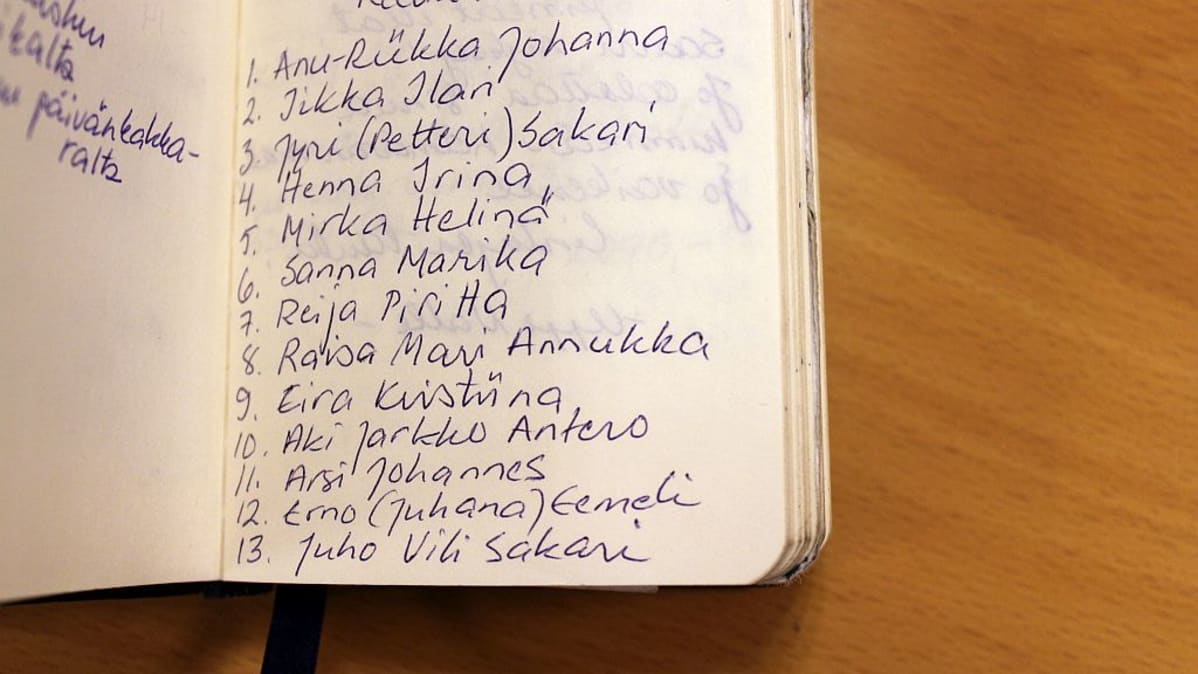 päivänkakka-
ralta
1. Anu-Riikka Johanna
2. Iikka Ilari
3. Jyri (Petteri) Sakari
4. Henna Irina
5. Mirka Helinä
6. Sanna Marika
7. Reija Piritta
8. Raisa Mari Annukka
9. Eira Kristiina
10. Aki Jarkko Antero
11. Arsi Johannes
12. Erno (Juhana) Eemeli
13. Juho Vili Sakari